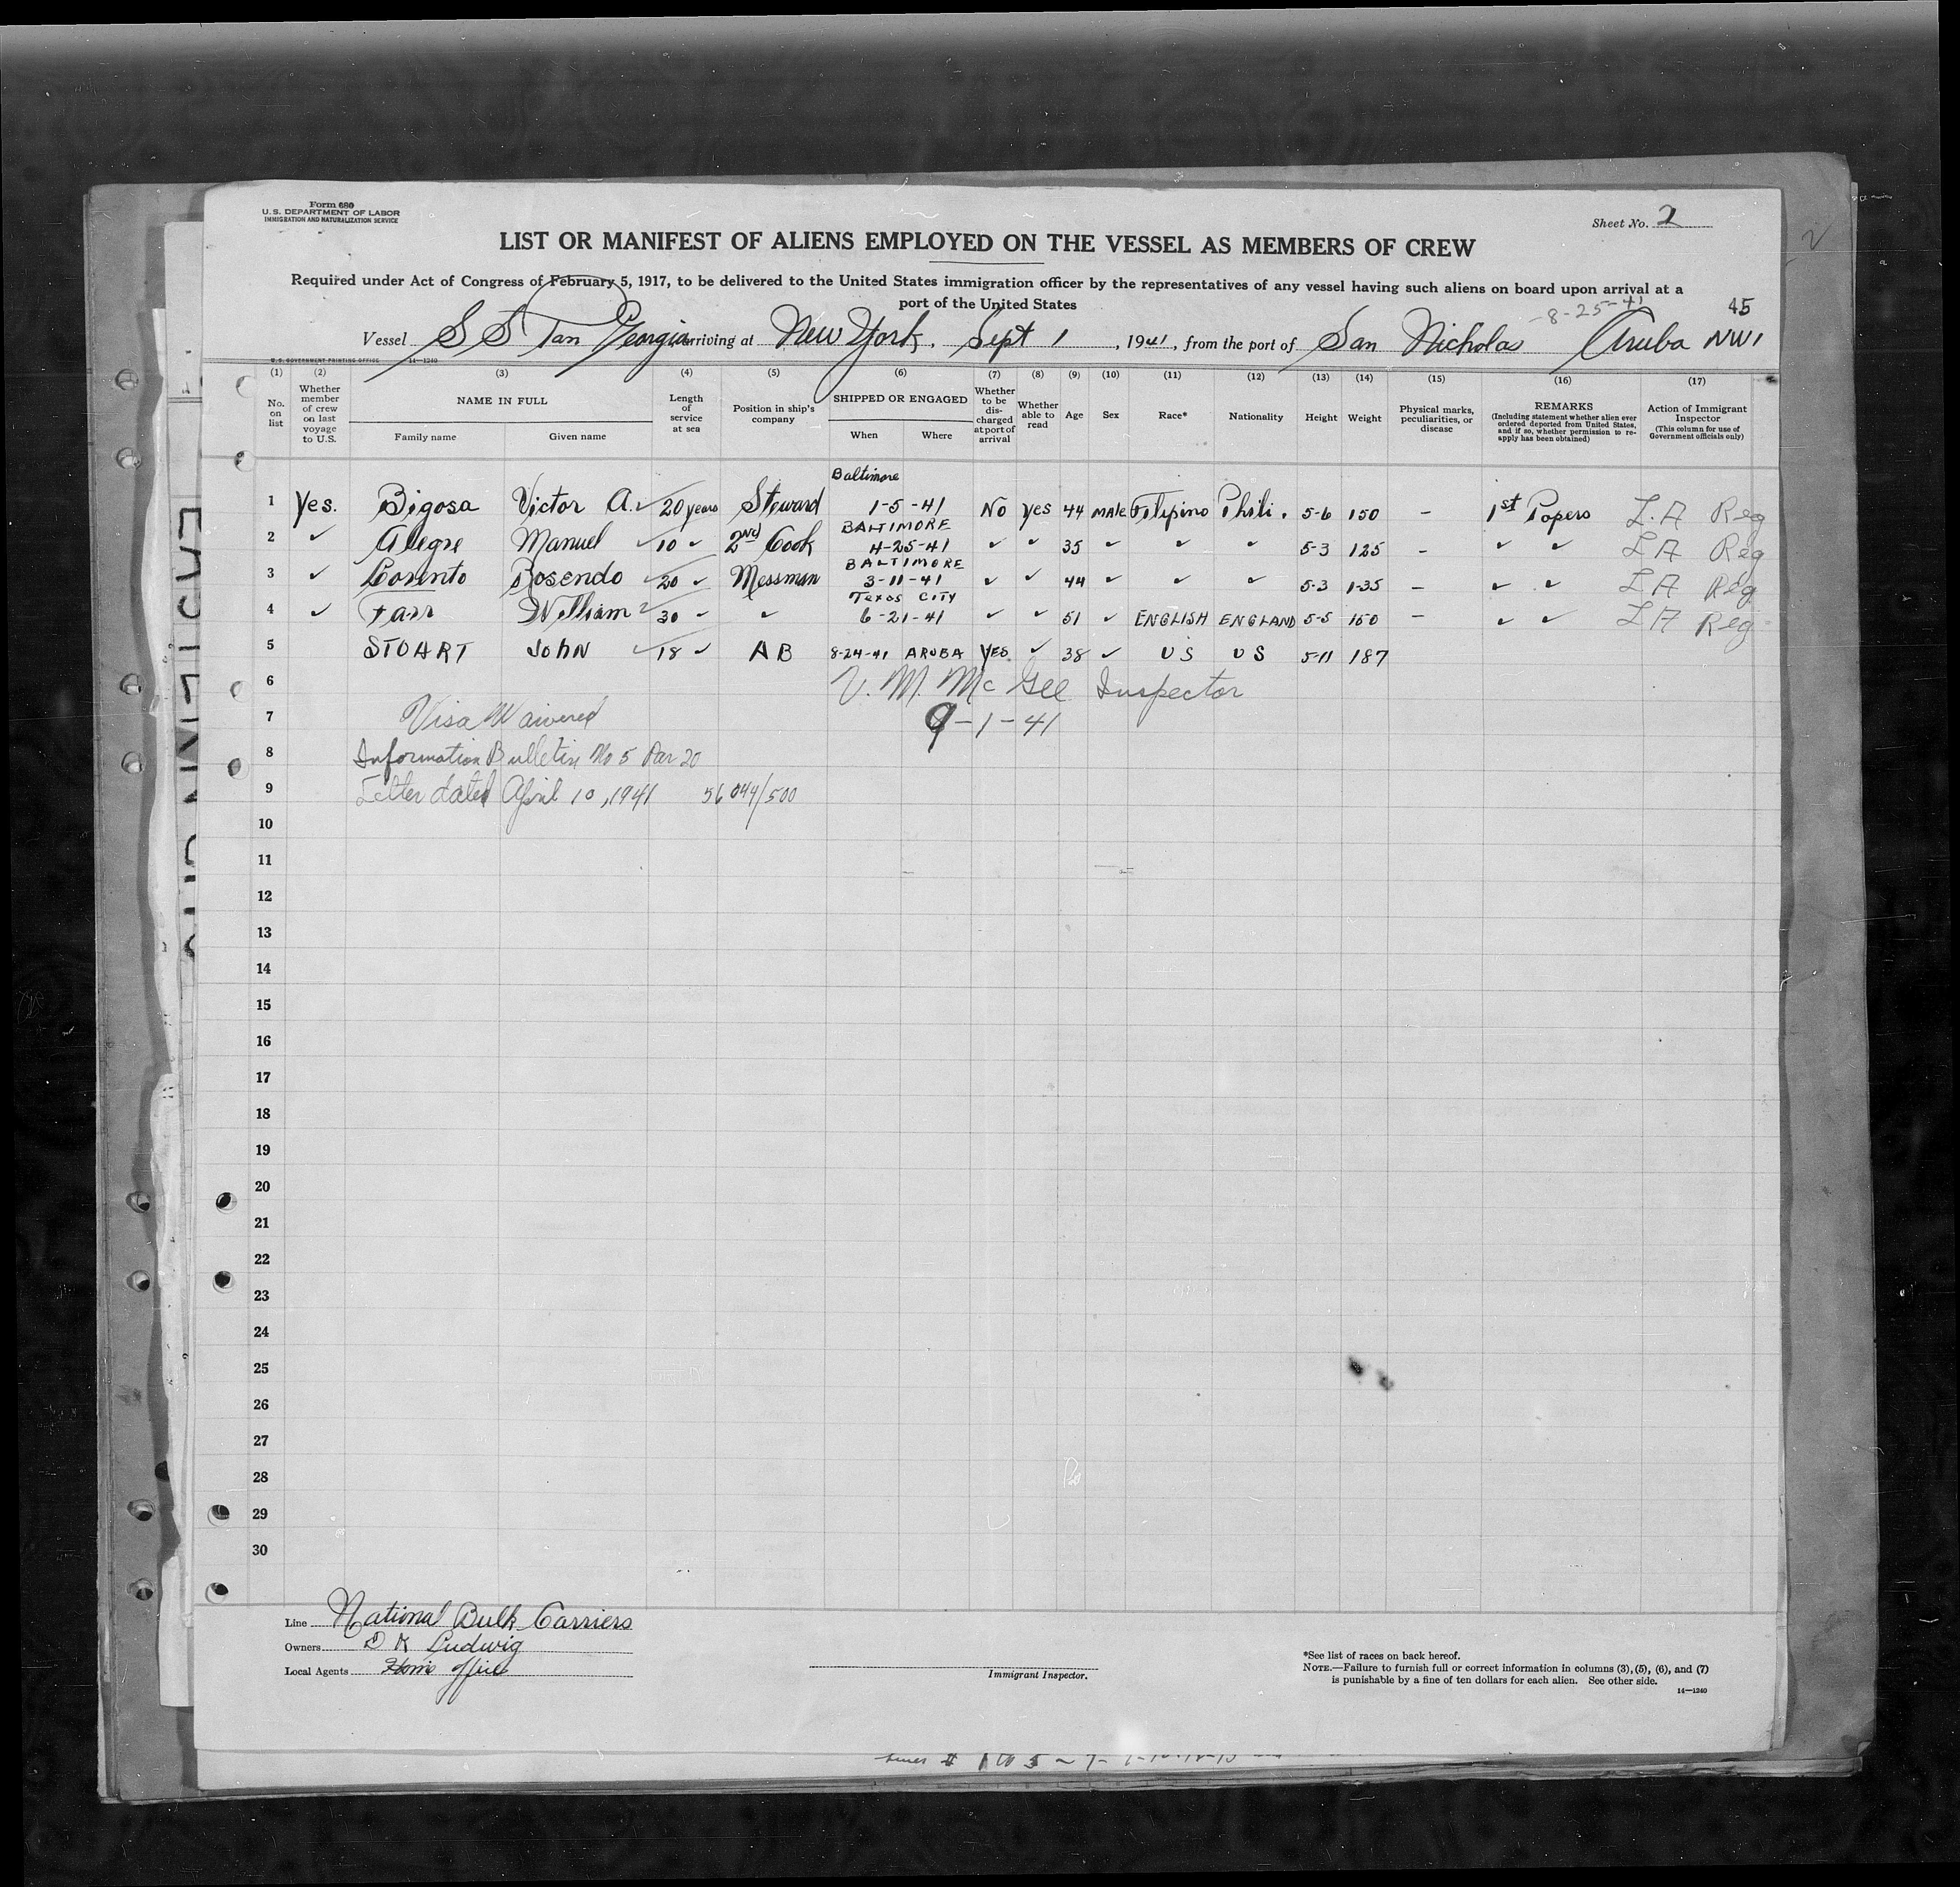 Form 680
U.S. DEPARTMENT OF LABOR
IMMIGRATION AND NATURALIZATION SERVICE
Sheet No. 2
LIST OR MANIFEST OF ALIENS EMPLOYED ON THE VESSEL AS MEMBERS OF CREW
Required under Act of Congress of February 5, 1917, to be delivered to the United States immigration officer by the representatives of any vessel having such aliens on board upon arrival at a
port of the United States
-8-25-41 45
Vessel S S Pan Georgia arriving at New York. Sept 1, 1941, from the port of San Nicholas Aruba NWI
U.S. GOVERNMENT PRINTING OFFICE 14—1240
(1) (2) (3) (4) (5) (6) (7) (8) (9) (10) (11) (12) (13) (14) (15) (16) (17)
No. on list Whether member of crew on last voyage to U.S. NAME IN FULL Family name Given name Length of service at sea Position in ship's company SHIPPED OR ENGAGED When Where Whether to be discharged at port of arrival Whether able to read Age Sex Race* Nationality Height Weight Physical marks, peculiarities, or disease REMARKS (Including statement whether alien ever ordered deported from United States, and if so, whether permission to reapply has been obtained) Action of Immigrant Inspector (This column for use of Government officials only)
Baltimore
1 Yes. Bigosa Victor A. ✓ 20 years Steward 1-5-41 No yes 44 MALE Filipino Phili. 5-6 150 — 1st Papers L.A Reg
BALTIMORE
2 ✓ Alegre Manuel ✓ 10 ✓ 2nd Cook 4-25-41 ✓ ✓ 35 ✓ ✓ ✓ 5-3 125 — ✓ ✓ LA Reg
BALTIMORE
3 ✓ Rosendo ✓ 20 ✓ Messman 3-11-41 ✓ ✓ 44 ✓ ✓ ✓ 5-3 135 — ✓ ✓ LA Reg
Texas CITY
4 ✓ Farr William ✓ 30 ✓ ✓ 6-21-41 ✓ ✓ 51 ✓ ENGLISH ENGLAND 5-5 150 — ✓ ✓ LA Reg
5 STUART JOHN ✓ 18 ✓ AB 8-24-41 ARUBA YES ✓ 38 ✓ US US 5-11 187
6 V. M. McGee Inspector
7 Visa Waived 9-1-41
8 Information Bulletin No 5 Par 20
9 Letter dated April 10, 1941 56044/500
10
11
12
13
14
15
16
17
18
19
20
21
22
23
24
25
26
27
28
29
30
Line National Bulk Carriers
Owners D K Ludwig
Local Agents Home office
Immigrant Inspector.
*See list of races on back hereof.
NOTE.—Failure to furnish full or correct information in columns (3), (5), (6), and (7)
is punishable by a fine of ten dollars for each alien. See other side.
14—1240